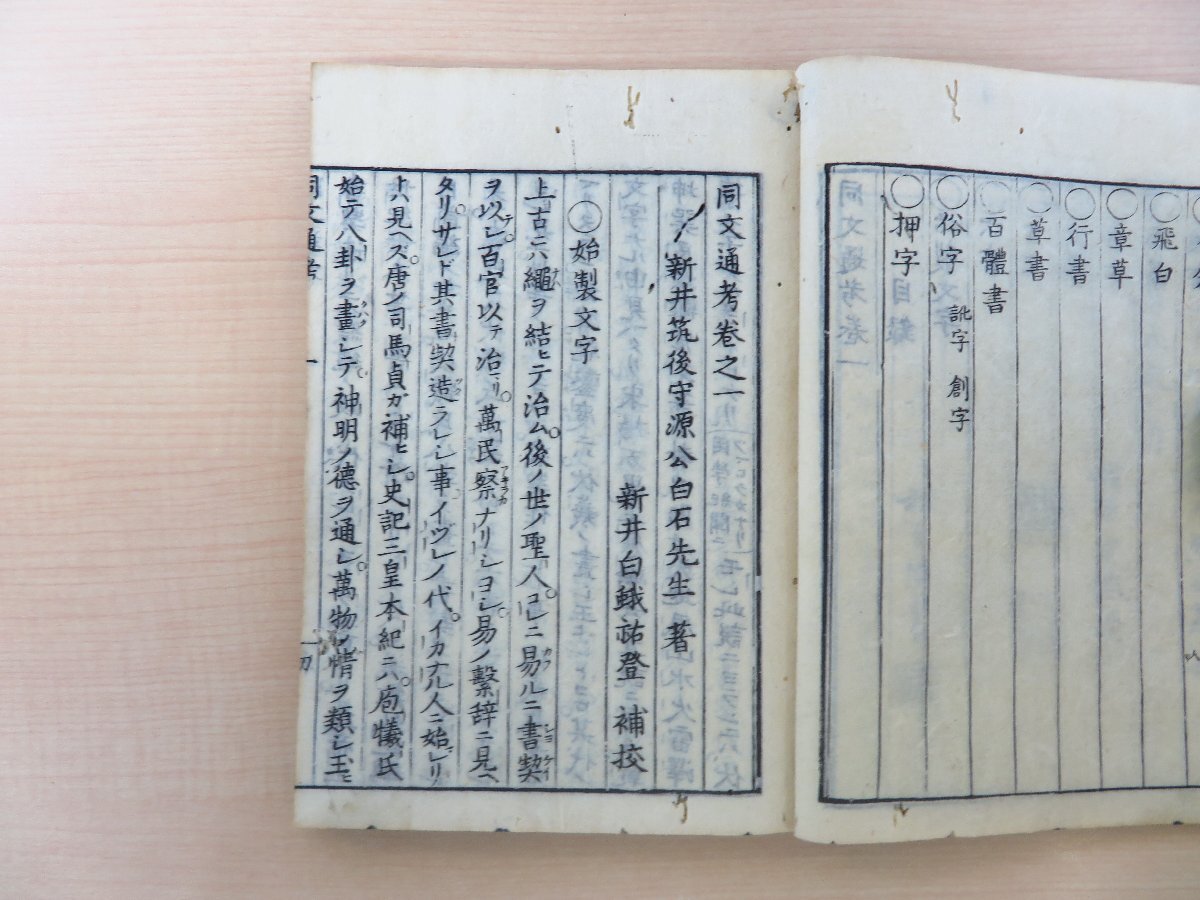 〇飛白
〇章草
〇行書
〇草書
〇百體書
〇俗字 訛字 創字
〇押字
同文通考卷之一
新井筑後守源公白石先生著
新井白蛾祐登補挍
〇始製文字
上古ニハ繩ヲ結ヒテ治ム。後ノ世ノ聖人。コレニ易ルニ書契
ヲ以シテ。百官以テ治リ。萬民察ナリシヨシ。易ノ繫辞ニ見ヘ
タリ。サレド其書契造ラレシ事イツレノ代。イカナル人ニ始レリ
ト八見ヘズ。唐ノ司馬貞ガ補ヒシ。史記三皇本紀ニハ。庖犧氏
始テ八卦ヲ畫シテ。神明ノ德ヲ通シ。萬物ノ情ヲ類シ玉ヒ
同文通考 一